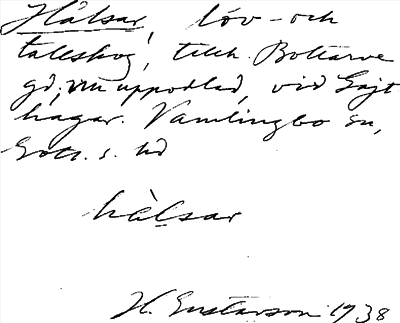 Hålsar, löv- och
tallskog, tillh. Bottarve
gd; nu uppodlad, vid Gajt
hagar. Vamlingbo sn,
Gotl. s. hd
hàlsar
H. Gustavson 1938